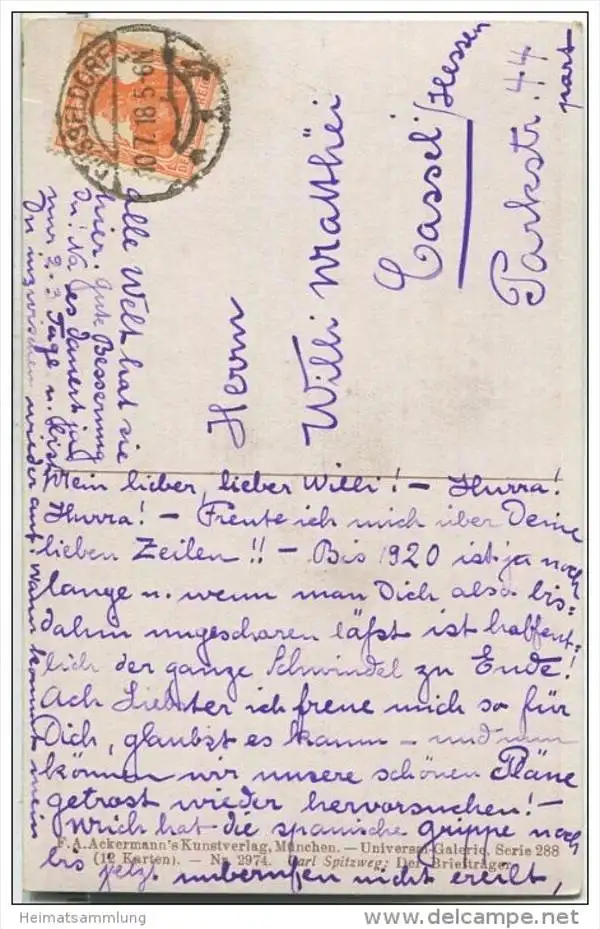 DÜSSELDORF
10.7.18.5-6N
Herrn
Willi Matthëi
Cassel/Hessen
Parkstr. 44
part
Mein lieber, lieber Willi! - Hurra!
Hurra! - Freute ich mich über Deine
lieben Zeilen!! - Bis 1920 ist ja noch
lange u. wenn man Dich also bis=
dahin ungeschoren läßt ist hoffent=
lich der ganze Schwindel zu Ende!
Ach Liebster ich freue mich so für
Dich, glaubst es kaum - und nun
können wir unsere schönen Pläne
getrost wieder hervorsuchen! -
Mich hat die spanische Grippe noch
bis jetzt unberufen nicht ereilt,
alle Welt hat sie
hier. Gute Besserung
Du! Na es dauert ja
nur 2-3 Tage u. bist
Du inzwischen wieder auf. Wann kommt mein
F. A. Ackermann's Kunstverlag, München. — Universal-Galerie, Serie 288
(12 Karten). — Nr. 2974. Carl Spitzweg: Der Briefträger
Heimatsammlung
www.delcampe.net